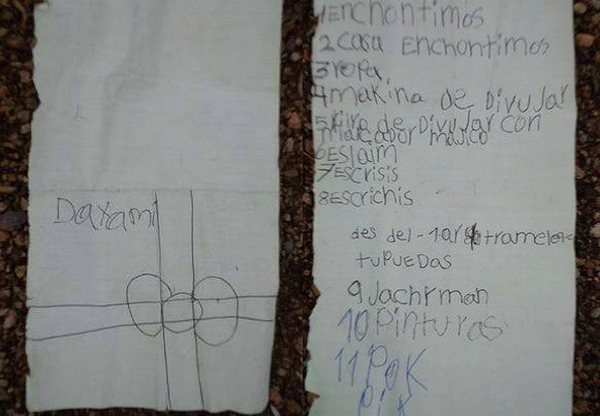 Dayami
1 Enchontimos
2 casa Enchontimos
3 ropa
4 makina de Divujar
de Divujar con
majico
6 Eslaim
7 Escrisis
8 Escrichis
des del-1 a
tupuedas
9 Jachrman
10 Pinturas
11